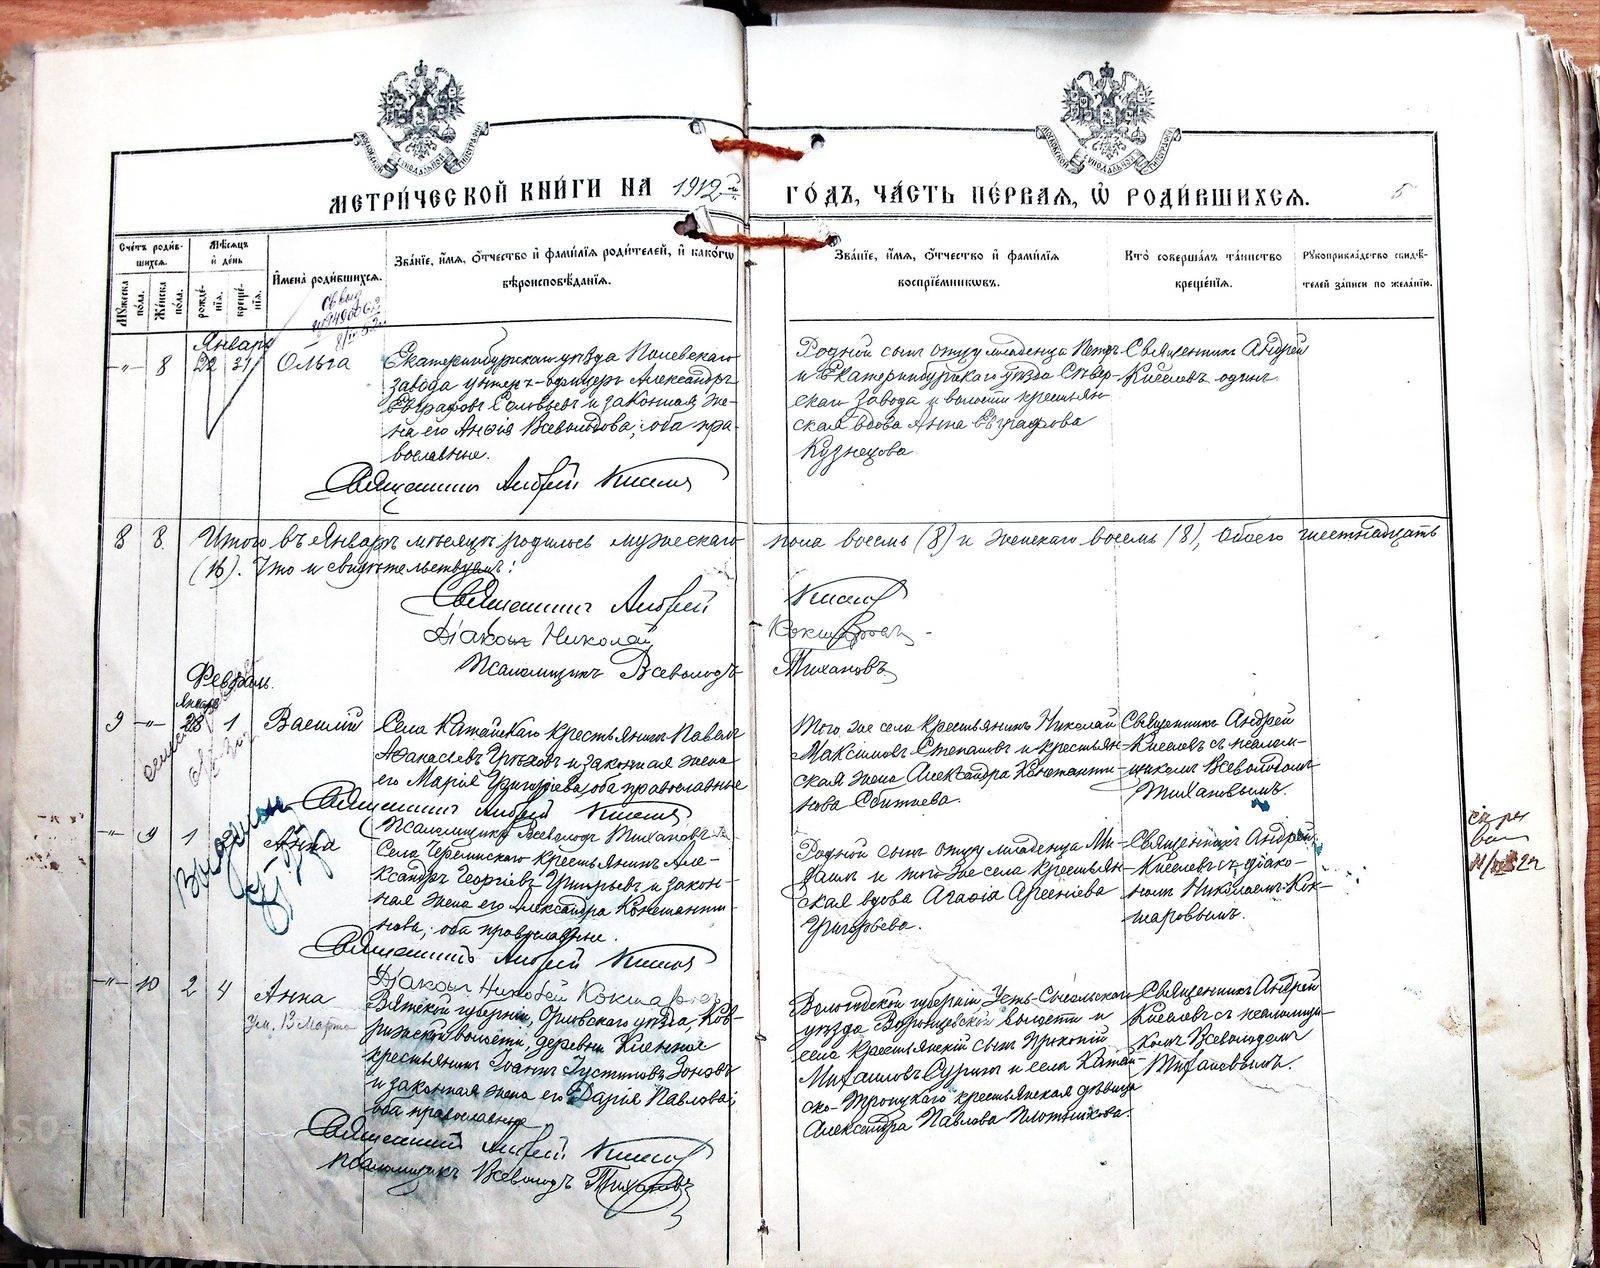 МЕТРИ́ЧЕСКОЙ КНИ́ГИ НА 1912 й
ГО́ДЪ, ЧА́СТЬ ПЕ́РВАЯ, Ѡ РОДИ́ВШИХСЯ. 5
Сче́тъ роди́в-
шихся.
Му́жеска по́ла.
Же́нска по́ла.
Мѣ́сяцъ
и́ де́нь
рожде́-
нїя.
креще́-
нїя.
И҆мена̀ роди́вшихся.
Зва́нїе, и҆́мя, о҆́тчество и҆ фами́лїя роди́телей, и҆ како́гѡ
вѣроисповѣ́данїя.
Зва́нїе, и҆́мя, о҆́тчество и҆ фами́лїя
воспрїе́мниковъ.
Кто̀ соверша́лъ та́инство
креще́нїя.
Рукоприкла́дство свидѣ́-
телей за́писи по жела́нїю.
Январь
-„- 8 22 31 Ольга
Екатеринбургскаго уѣзда Полевскаго
завода унтеръ-офицеръ Александръ
Евграфовъ Соловьевъ и законная же-
на его Анфія Всеволодова; оба пра-
вославные.
Священникъ Андрей Киселевъ
Родной сынъ отцу младенца Петръ
и Екатеринбургскаго уѣзда Сѣвер-
скаго завода и волости крестьян-
ская вдова Анна Евграфова
Кузнецова
Священникъ Андрей
Киселевъ одинъ
8 8 Итого въ Январѣ мѣсяцѣ родилось мужескаго пола восемь (8) и женскаго восемь (8), обоего шестнадцать
(16). Что и свидѣтельствуемъ:
Священникъ Андрей Киселевъ
Діаконъ Николай Кокшаровъ
Псаломщикъ Всеволодъ Тихановъ
Февраль.
Январь
9 -„- 28 1 Василій
Села Катайскаго крестьянинъ Павелъ
Аѳанасьевъ и законная жена
его Марія Григоріева, оба православные
Священникъ Андрей Киселевъ
Псаломщикъ Всеволодъ Тихановъ
Того же села крестьянинъ Николай
Максимовъ Степановъ и крестьян-
ская жена Александра Константи-
нова
Священникъ Андрей
Киселевъ съ псалом-
щикомъ Всеволодомъ
Тихановымъ.
-„- 9 1 Анна
Села крестьянинъ Але-
ксандръ Георгіевъ Григорьевъ и закон-
ная жена его Александра Константи-
нова; оба православные.
Священникъ Андрей Киселевъ
Діаконъ Николай Кокшаровъ
Родной сынъ отцу младенца Ми-
хаилъ и того же села крестьян-
ская вдова Агафія Арсеніева
Григорьева.
Священникъ Андрей
Киселевъ съ діако-
номъ Николаемъ Кок-
шаровымъ.
-„- 10 2 4 Анна
Ум. 13 Марта
Вятской губерніи, Орловскаго уѣзда, Ков-
рижской волости, деревни
крестьянинъ Іоаннъ Іустиновъ Зоновъ
и законная жена его Дарія Павлова;
оба православные
Священникъ Андрей Киселевъ
Псаломщикъ Всеволодъ Тихановъ
Вологодской губерніи Усть-Сысольскаго
уѣзда волости и
села крестьянскій сынъ Прокопій
Михаиловъ и села Катай-
ско-Троицкаго крестьянская дѣвица
Александра Павлова Плотникова.
Священникъ Андрей
Киселевъ съ псаломщи-
комъ Всеволодомъ
Тихановымъ.